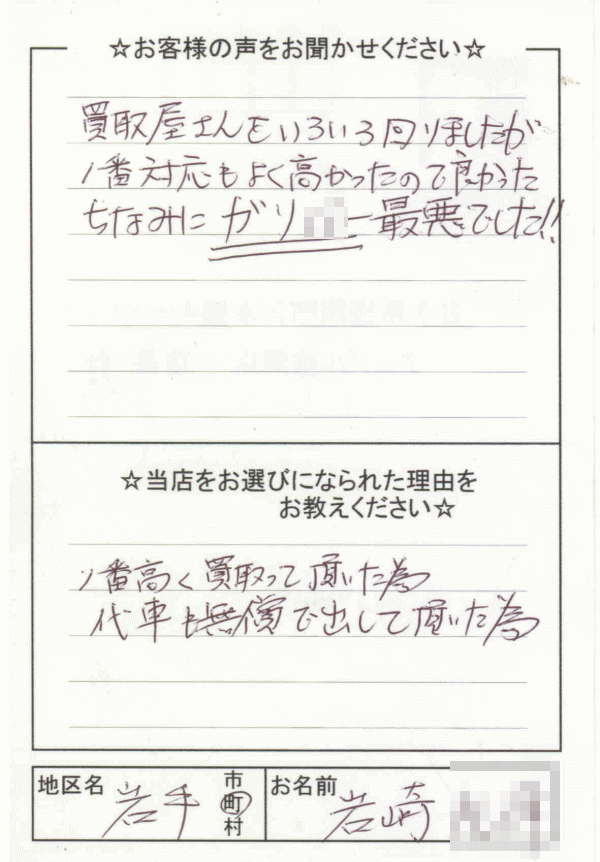 ☆お客様の声をお聞かせください☆
買取屋さんをいろいろ回りましたが
1番対応もよく高かったので良かった
ちなみに ガリ ー最悪でした!!
☆当店をお選びになられた理由を
お教えください☆
1番高く買取って頂いた為
代車も無償で出して頂いた為
地区名 岩手 市町村 お名前 岩崎